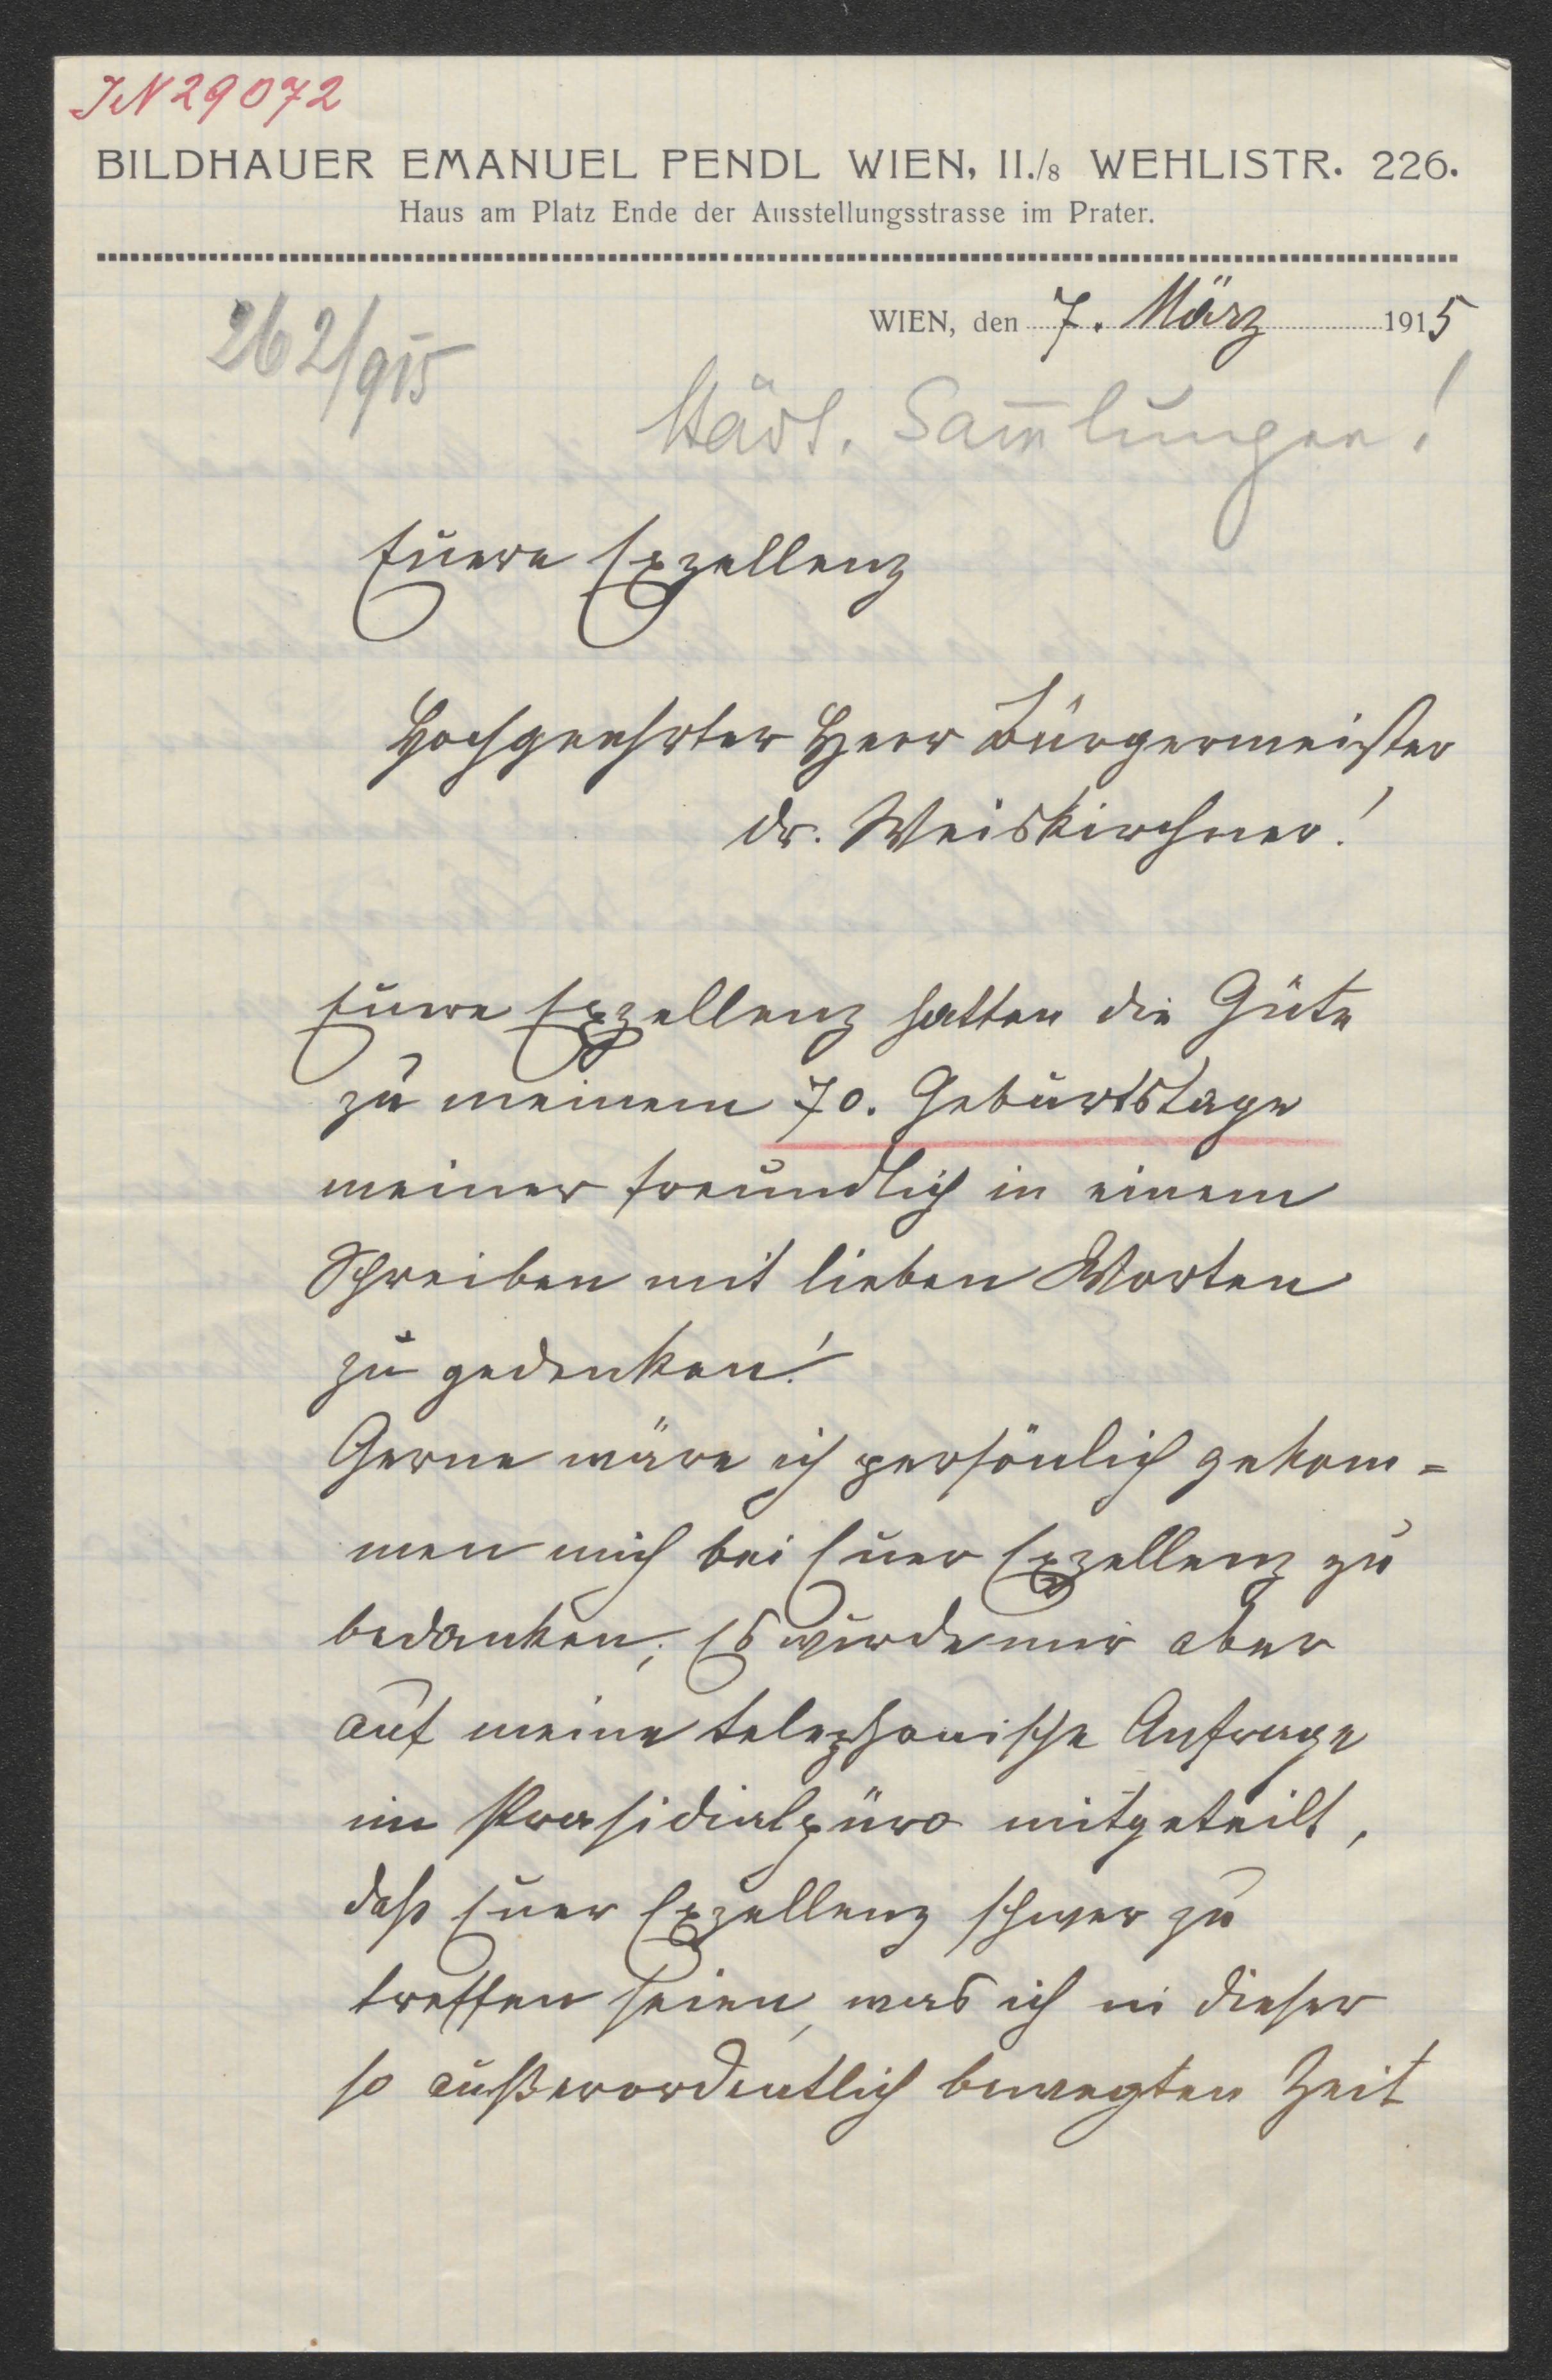 IN 29072
BILDHAUER EMANUEL PENDL WIEN, II./8 WEHLISTR. 226.
Haus am Platz Ende der Ausstellungsstrasse im Prater.
WIEN, den 7. März 1915
262/915
Städt. Sam̅lungen!
Euere Exzellenz
Hochgeehrter Herr Bürgermeister
Dr. Weiskirchner!
Euere Exzellenz hatten die Güte
zu meinem 70. Geburtstage
meiner freundlich in einem
Schreiben mit lieben Worten
zu gedenken!
Gerne wäre ich persönlich gekom=
men mich bei Euer Exzellenz zu
bedanken; Es wurde mir aber
auf meine telephonische Anfrage
im Präsidialpüro mitgeteilt,
daß Euer Exzellenz schwer zu
treffen seien, was ich in dieser
so außerordentlich bewegten Zeit